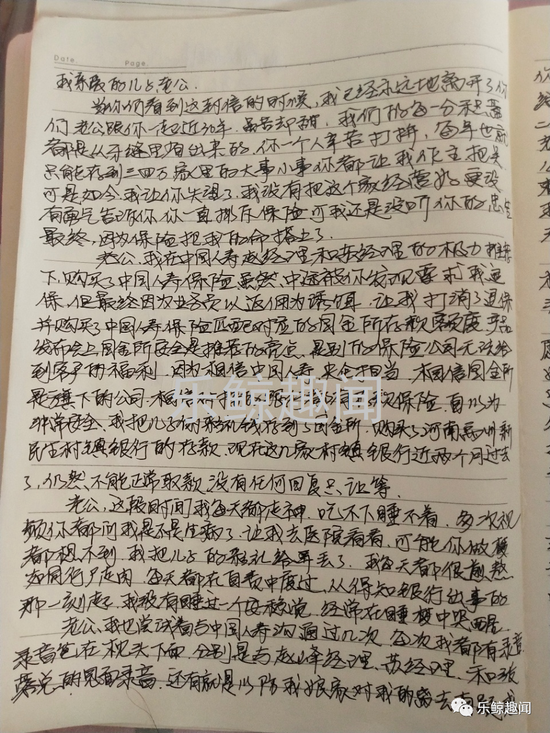 Date. Page.
我亲爱的儿子老公.
当你们看到这封信的时候,我已经永远地离开了你
们.老公跟你一起近30年.虽苦却甜.我们的每一分积蓄
都是从牙缝里省出来的.你一个人辛苦打拼,每年也就
只能存到三四万家里的大事小事你都让我作主把关
可是如今.我让你失望了.我没有把这个家经营好.更没
有勇气告诉你.你一直排斥保险,可我还是没听你的
最终,因为保险把我的命搭上了.
老公.在中国人寿赵经理和苏经理的极力推荐
下.购买了中国人寿保险虽然.中途被你发现要求我退
保.但最终因为业务员以返佣为诱饵.让我打消了退保
并购买了中国人寿保险匹配对应的国金所存款额度.
发布会上国金所安全是推荐的亮点.是别的保险公司无法给
到客户的福利.因为相信中国人寿.央企担当.相信国金所
是旗下的公司.相信存款保险.自以为
非常安全.我把儿子的彩礼钱存到了国金所.购买了河南禹州新
民生村镇银行的存款.现在这几家村镇银行近两个月过去
了,仍然不能正常取款没有任何回复.只让等.
老公,这段时间我每天都走神.吃不下睡不着.多次视
频你都问我是不是生病了.让我去医院看看.可能你做梦
都想不到.我把儿子的彩礼给弄丢了.我每天都很煎熬
如同行尸走肉.每天都在自责中度过.从得知银行出事的
那一刻起.我没有睡过一个安稳觉.经常在睡梦中哭醒
老公.我也尝试着与中国人寿沟通过几次.每次我都有录音
录音笔在枕头下面.分别是与赵峰经理.苏经理.和
的见面录音.还有就是以防我娘家对我的离去有
乐鲸趣闻
乐鲸趣闻